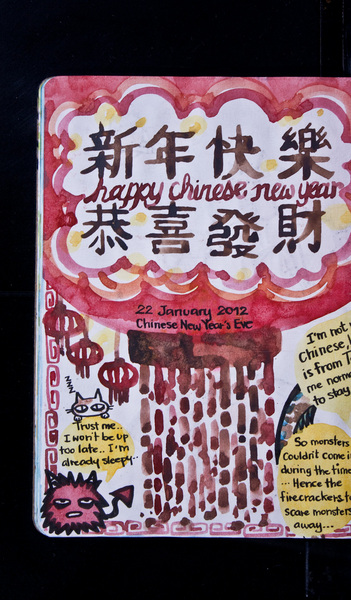 新年快樂
happy chinese new year
恭喜發財
22 January 2012
Chinese New Year's Eve
I'm not
Chinese,
is from
me
to stay
Trust me..
I won't be up
too late.. I'm
already sleepy..
So monsters
Couldn't come i
during the time
... Hence the
firecrackers t
scare monsters
away...